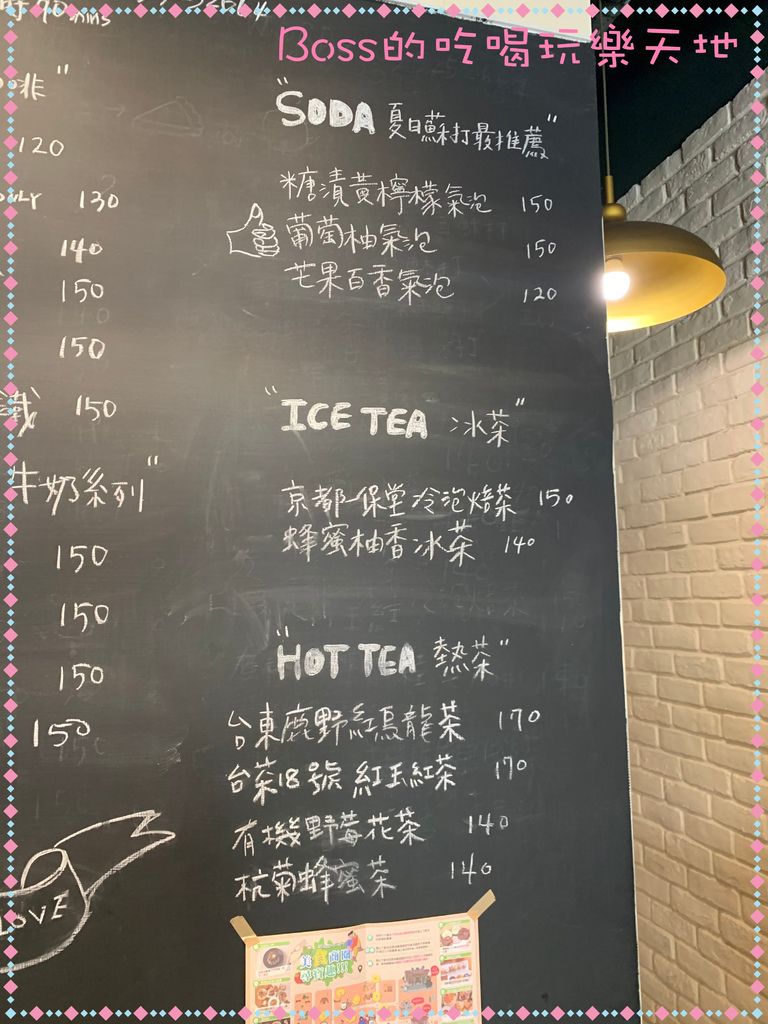 Boss的吃喝玩樂天地
時90mins
啡"
120
130
140
150
150
鐵 150
牛奶系列"
150
150
150
150
LOVE
"SODA 夏日蘇打最推薦"
糖漬黃檸檬氣泡 150
葡萄柚氣泡 150
芒果百香氣泡 120
"ICE TEA 冰茶"
京都一保堂冷泡焙茶 150
蜂蜜柚香冰茶 140
"HOT TEA 熱茶"
台東鹿野紅烏龍茶 170
台茶18號 紅玉紅茶 170
有機野莓花茶 140
杭菊蜂蜜茶 140
美食商圈
尋寶趣!!!